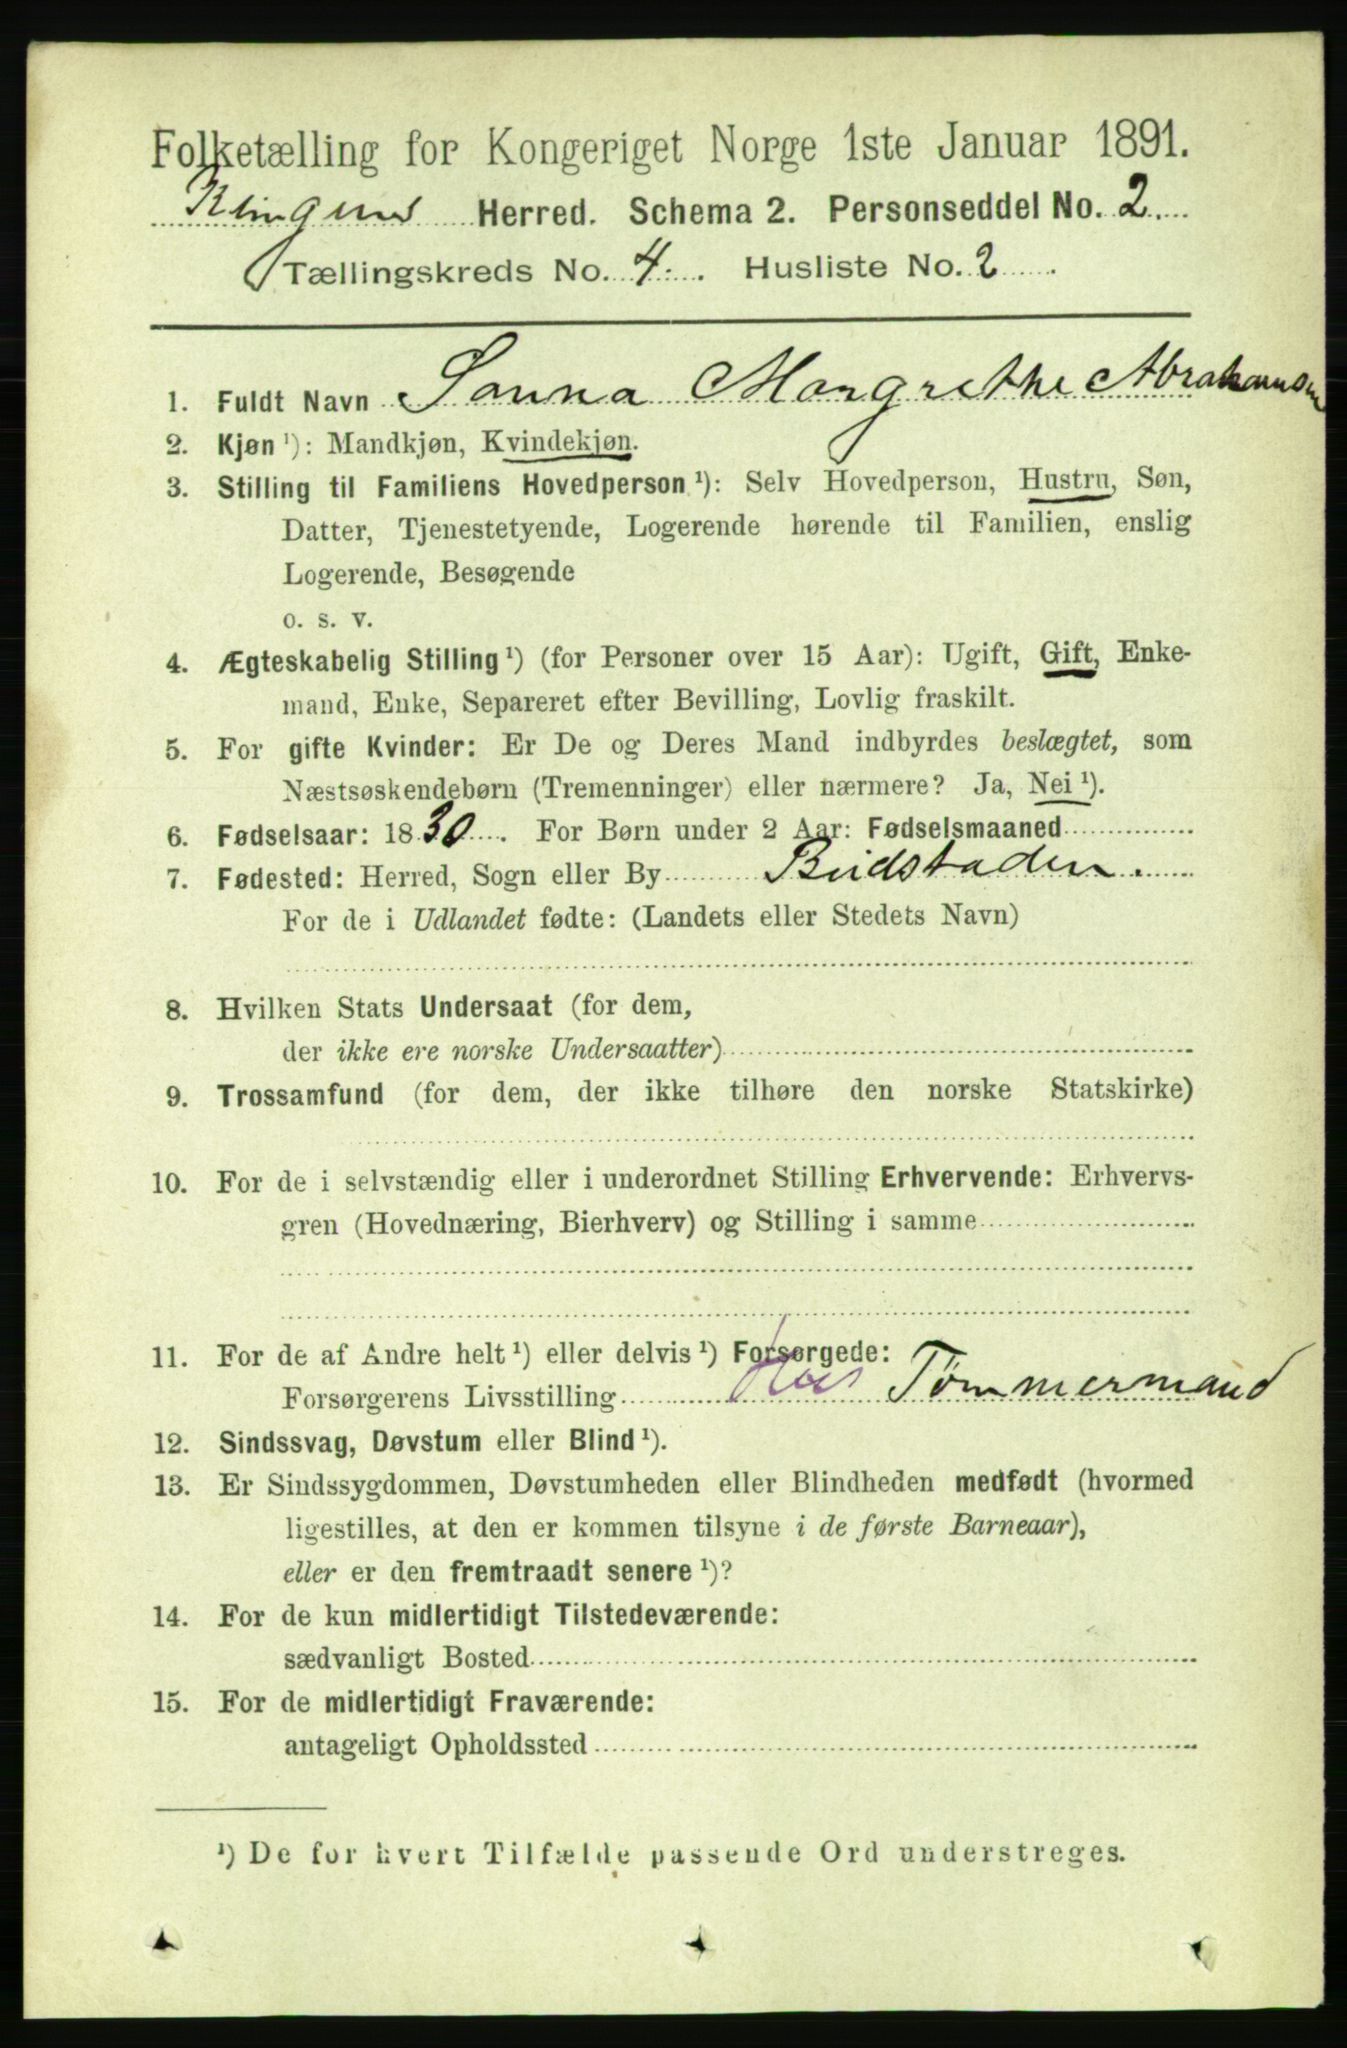 Folketælling for Kongeriget Norge 1ste Januar 1891.
Herred. Schema 2. Personseddel No. 2.
Tællingskreds No. 4. Husliste No. 2
1. Fuldt Navn Sanna Margrethe Abrahamsen
2. Kjøn ¹): Mandkjøn, Kvindekjøn.
3. Stilling til Familiens Hovedperson ¹): Selv Hovedperson, Hustru, Søn,
Datter, Tjenestetyende, Logerende hørende til Familien, enslig
Logerende, Besøgende
o. s. v.
4. Ægteskabelig Stilling ¹) (for Personer over 15 Aar): Ugift, Gift, Enke-
mand, Enke, Separeret efter Bevilling, Lovlig fraskilt.
5. For gifte Kvinder: Er De og Deres Mand indbyrdes beslægtet, som
Næstsøskendebørn (Tremenninger) eller nærmere? Ja, Nei ¹).
6. Fødselsaar: 1830. For Børn under 2 Aar: Fødselsmaaned
7. Fødested: Herred, Sogn eller By Budstaden.
For de i Udlandet fødte: (Landets eller Stedets Navn)
8. Hvilken Stats Undersaat (for dem,
der ikke ere norske Undersaatter)
9. Trossamfund (for dem, der ikke tilhøre den norske Statskirke)
10. For de i selvstændig eller i underordnet Stilling Erhvervende: Erhvervs-
gren (Hovednæring, Bierhverv) og Stilling i samme
11. For de af Andre helt ¹) eller delvis ¹) Forsørgede:
Forsørgerens Livsstilling Tømmermand
12. Sindssvag, Døvstum eller Blind ¹).
13. Er Sindssygdommen, Døvstumheden eller Blindheden medfødt (hvormed
ligestilles, at den er kommen tilsyne i de første Barneaar),
eller er den fremtraadt senere ¹)?
14. For de kun midlertidigt Tilstedeværende:
sædvanligt Bosted
15. For de midlertidigt Fraværende:
antageligt Opholdssted
¹) De for hvert Tilfælde passende Ord understreges.